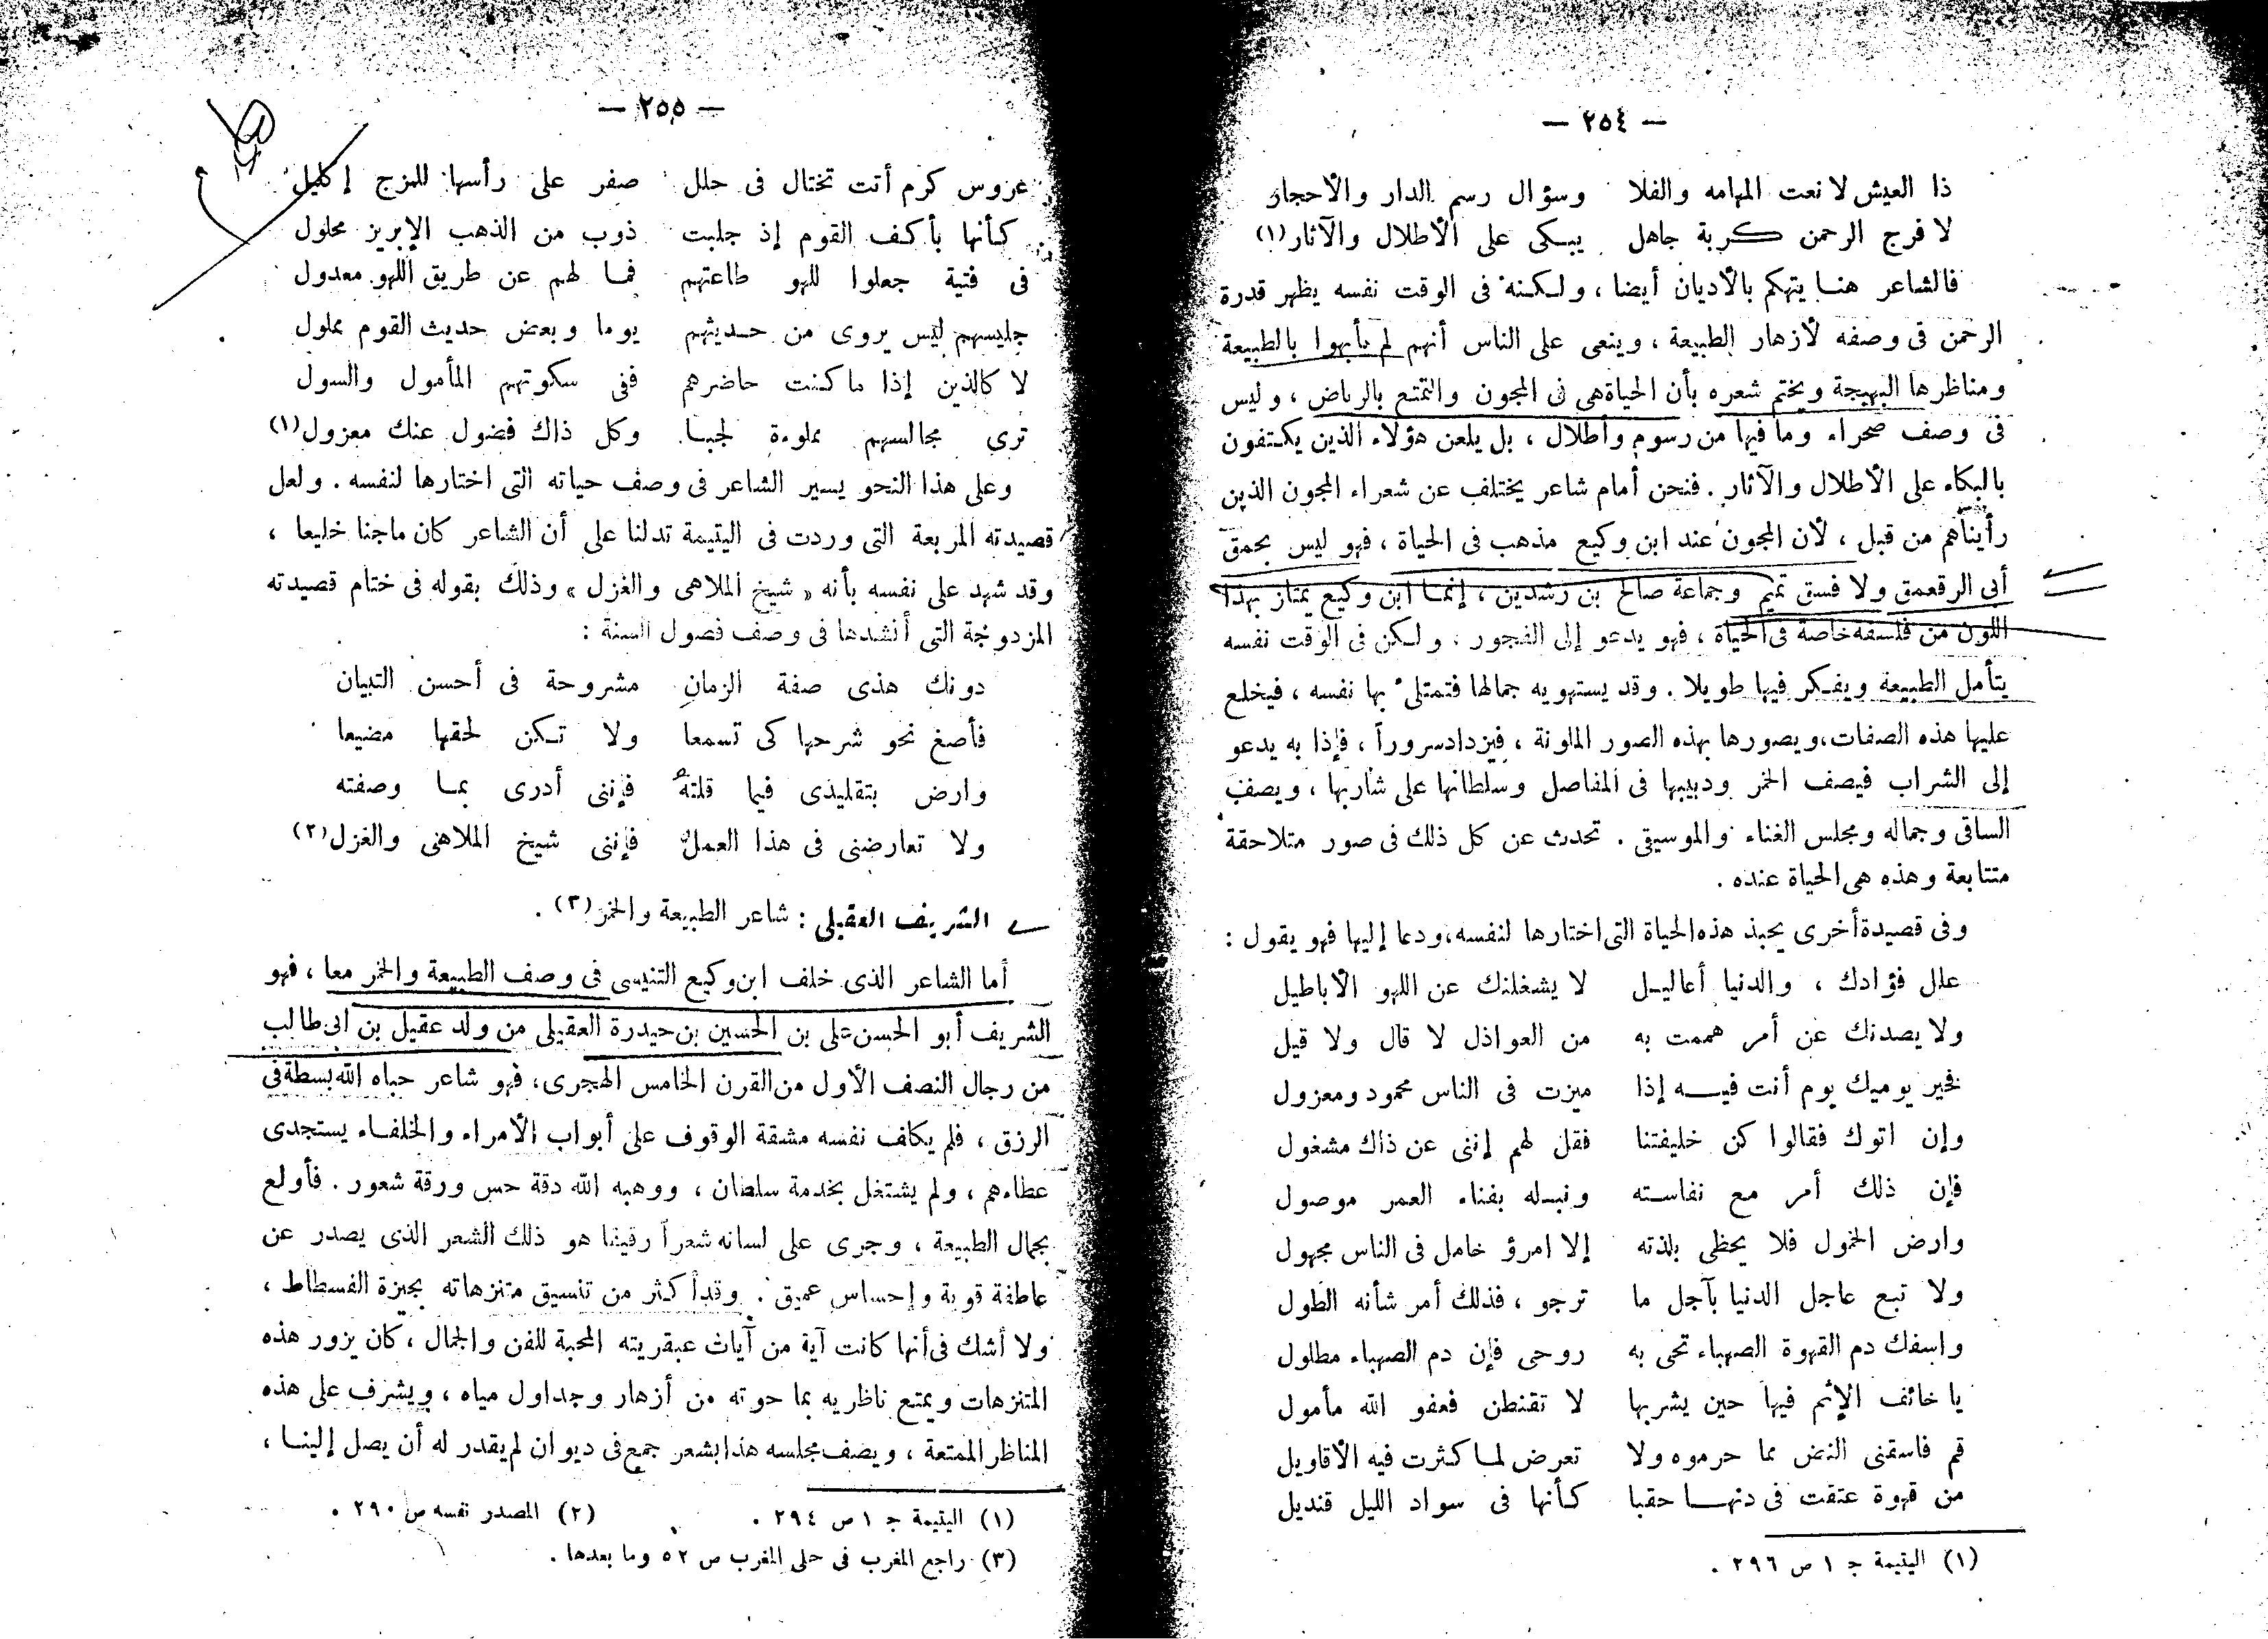 — ٢٥٤ —
ذا العيش لا نعت المهامه والفلا وسؤال رسم الدار والأحجار
لا فرج الرحمن كربة جاهل يبكى على الأطلال والآثار(١)
فالشاعر هنا يتهكم بالأديان أيضا ، ولكنه فى الوقت نفسه يظهر قدرة
الرحمن فى وصفه لأزهار الطبيعة ، وينعى على الناس أنهم لم يأبهوا بالطبيعة
ومناظرها البهيجة ويختم شعره بأن الحياة هى فى المجون والتمتع بالرياض ، وليس
فى وصف صحراء وما فيها من رسوم وأطلال ، بل يلعن هؤلاء الذين يكتفون
بالبكاء على الأطلال والآثار . فنحن أمام شاعر يختلف عن شعراء المجون الذين
رأيناهم من قبل ، لأن المجون عند ابن وكيع مذهب فى الحياة ، فهو ليس بحمق
أبى الرقعمق ولا فسق تميم وجماعة صالح بن رشدين ، إنما ابن وكيع يمتاز بهذا
اللون من فلسفه خاصة فى الحياة ، فهو يدعو إلى الفجور ، ولكن فى الوقت نفسه
يتأمل الطبيعة ويفكر فيها طويلا . وقد يستهويه جمالها فتمتلىء بها نفسه ، فيخلع
عليها هذه الصفات ، ويصورها بهذه الصور الملونة ، فيزداد سروراً ، فإذا به يدعو
إلى الشراب فيصف الخمر ودبيبها فى المفاصل وسلطانها على شاربها ، ويصف
الساقى وجماله ومجلس الغناء والموسيقى . تحدث عن كل ذلك فى صور متلاحقة
متتابعة وهذه هى الحياة عنده .
وفى قصيدة أخرى يحبذ هذه الحياة التى اختارها لنفسه ، ودعا إليها فهو يقول :
علل فؤادك ، والدنيا أعاليل لا يشغلنك عن اللهو الأباطيل
ولا يصدنك عن أمر هممت به من العواذل لا قال ولا قيل
فخير يوميك يوم أنت فيه إذا ميزت فى الناس محمود ومعزول
وإن اتوك فقالوا كن خليفتنا فقل لهم إننى عن ذاك مشغول
فإن ذلك أمر مع نفاسته ونبله بفناء العمر موصول
وارض الخمول فلا يحظى بلذته إلا امرؤ خامل فى الناس مجهول
ولا تبع عاجل الدنيا بآجل ما ترجو ، فذلك أمر شأنه الطول
واسفك دم القهوة الصهباء تحى به روحى فإن دم الصهباء مطلول
يا خائف الإثم فيها حين يشربها لا تقنطن فعفو الله مأمول
قم فاسقنى النض مما حرموه ولا تعرض لما كثرت فيه الأقاويل
من قهوة عتقت فى دنها حقبا كأنها فى سواد الليل قنديل
(١) اليتيمة ج ١ ص ٢٩٦ .
— ٢٥٥ —
عروس كرم أتت تختال فى حلل صفر على رأسها للمزج إكليل
كأنها بأكف القوم إذ جلبت ذوب من الذهب الإبريز محلول
فى فتية جعلوا للهو طاعتهم فما لهم عن طريق اللهو معدول
جليسهم ليس يروى من حديثهم يوما وبعض حديث القوم مملول
لا كالذين إذا ما كنت حاضرهم ففى سكوتهم المأمول والسول
ترى مجالسهم مملوءة لجبا وكل ذاك فضول عنك معزول(١)
وعلى هذا النحو يسير الشاعر فى وصف حياته التى اختارها لنفسه . ولعل
قصيدته المربعة التى وردت فى اليتيمة تدلنا على أن الشاعر كان ماجنا خليعا ،
وقد شهد على نفسه بأنه « شيخ الملاهى والغزل » وذلك بقوله فى ختام قصيدته
المزدوجة التى أنشدها فى وصف فصول السنة :
دونك هذى صفة الزمان مشروحة فى أحسن التبيان
فأصغ نحو شرحها كى تسمعا ولا تكن لحقها مضيعا
وارض بتقليدى فيما قلته فإننى أدرى بما وصفته
ولا تعارضنى فى هذا العمل فإننى شيخ الملاهى والغزل(٢)
الشريف العقيلى : شاعر الطبيعة والخمر(٣) .
أما الشاعر الذى خلف ابن وكيع التنيسى فى وصف الطبيعة والخمر معا ، فهو
الشريف أبو الحسن على بن الحسين بن حيدرة العقيلى من ولد عقيل بن ابى طالب
من رجال النصف الأول من القرن الخامس الهجرى ، فهو شاعر حباه الله بسطة فى
الرزق ، فلم يكلف نفسه مشقة الوقوف على أبواب الأمراء والخلفاء يستجدى
عطاءهم ، ولم يشتغل بخدمة سلطان ، ووهبه الله دقة حس ورقة شعور . فأولع
بجمال الطبيعة ، وجرى على لسانه شعراً رقيقا هو ذلك الشعر الذى يصدر عن
عاطفة قوية وإحساس عميق . وقد أكثر من تنسيق متنزهاته بجيزة الفسطاط ،
ولا أشك فى أنها كانت آية من آيات عبقريته المحبة للفن والجمال ، كان يزور هذه
المتنزهات ويمتع ناظريه بما حوته من أزهار وجداول مياه ، ويشرف على هذه
المناظر الممتعة ، ويصف مجلسه هذا بشعر جمع فى ديوان لم يقدر له أن يصل إلينا ،
(١) اليتيمة ج ١ ص ٢٩٤ . (٢) المصدر نفسه ص ٢٩٠ .
(٣) راجع المغرب فى حلى المغرب ص ٥٢ وما بعدها .